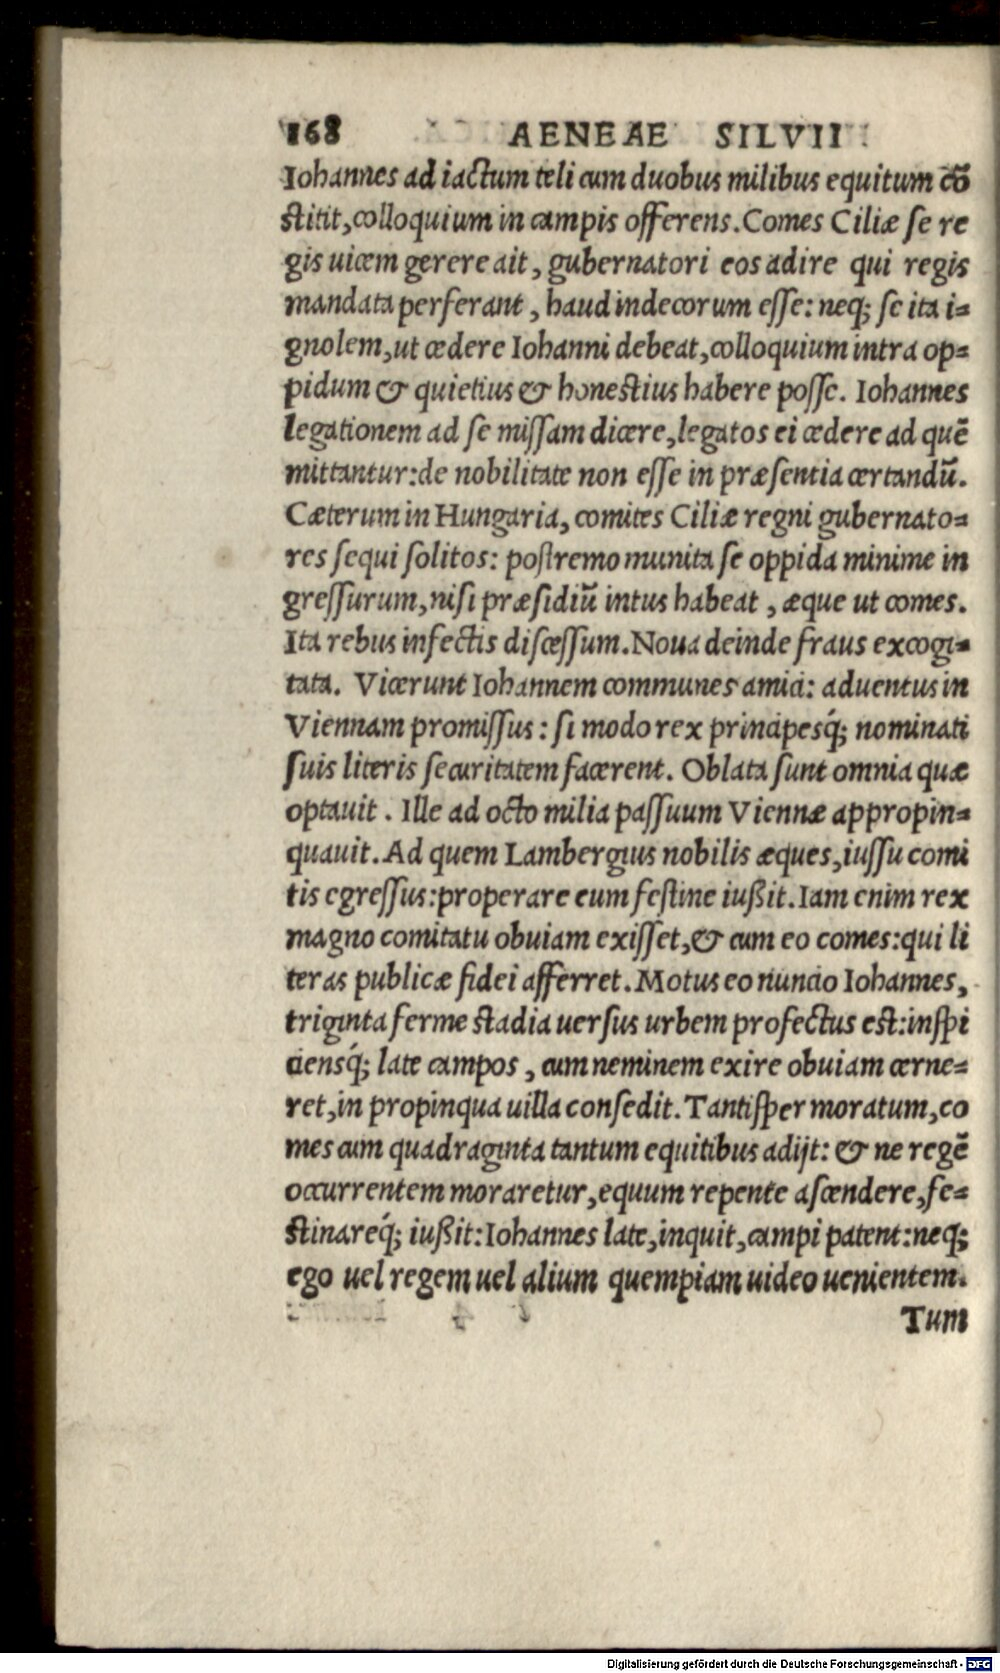 168 AENEAE SILVII
Iohannes ad iactum teli cum duobus milibus equitum cõ
stitit, colloquium in campis offerens. Comes Ciliæ se re
gis uicem gerere ait, gubernatori eos adire qui regis
mandata perferant, haud indecorum esse: neq; se ita i-
gnolem, ut cedere Iohanni debeat, colloquium intra op-
pidum & quietius & honestius habere posse. Iohannes
legationem ad se missam dicere, legatos ei cedere ad quē
mittantur: de nobilitate non esse in præsentia certandū.
Cæterum in Hungaria, comites Ciliæ regni gubernato-
res sequi solitos: postremo munita se oppida minime in
gressurum, nisi præsidiū intus habeat, æque ut comes.
Ita rebus infectis discessum. Noua deinde fraus excogi-
tata. Vicerunt Iohannem communes amici: aduentus in
Viennam promissus: si modo rex principesq́; nominati
suis literis securitatem facerent. Oblata sunt omnia quæ
optauit. Ille ad octo milia passuum Viennæ appropin-
quauit. Ad quem Lambergius nobilis æques, iussu comi
tis egressus: properare eum festine iußit. Iam enim rex
magno comitatu obuiam exisset, & cum eo comes: qui li
teras publicæ fidei afferret. Motus eo nuncio Iohannes,
triginta ferme stadia uersus urbem profectus est: inspi
ciensq́; late campos, cum neminem exire obuiam cerne-
ret, in propinqua uilla consedit. Tantisper moratum, co
mes cum quadraginta tantum equitibus adijt: & ne regē
occurrentem moraretur, equum repente ascendere, fe-
stinareq́; iußit: Iohannes late, inquit, campi patent: neq;
ego uel regem uel alium quempiam uideo uenientem.
Tum
Digitalisierung gefördert durch die Deutsche Forschungsgemeinschaft - DFG